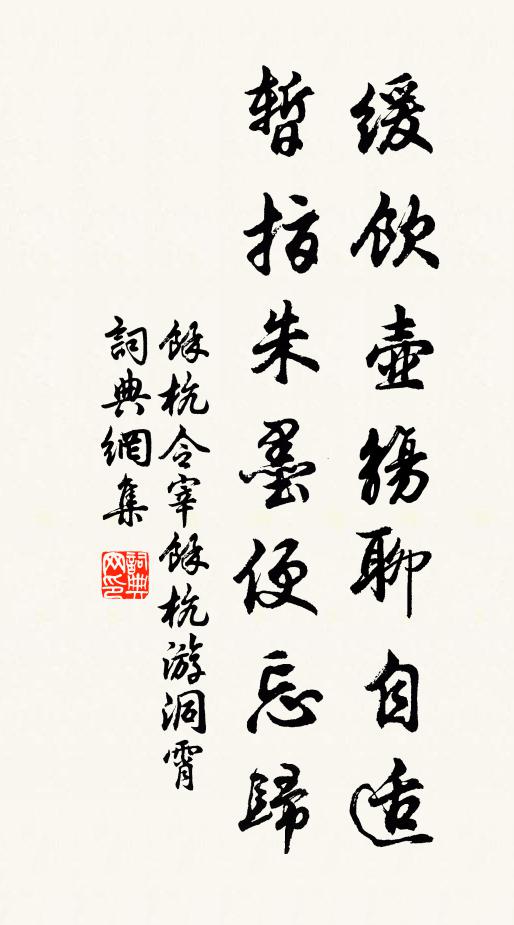 緩飲壺觴聊自适
暫指朱墨便忘歸
餘杭令宰餘杭游洞霄
詞典網集
詞典网印